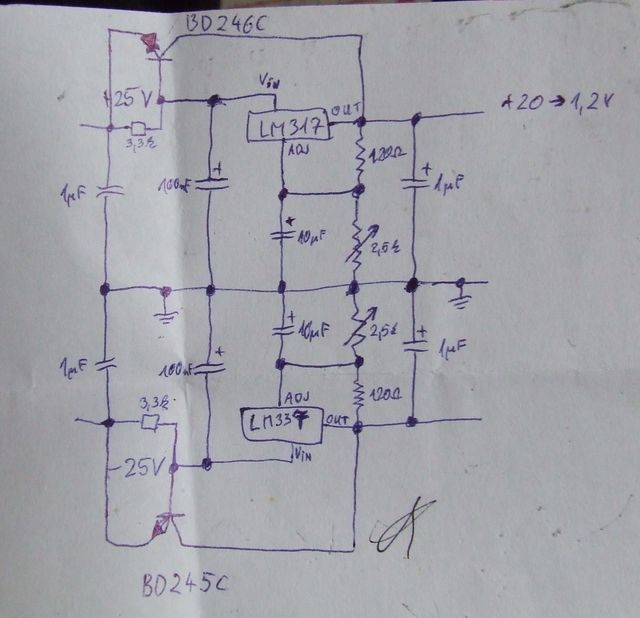 BD246C
+25V
Vin
OUT
+20→1,2V
LM317
3,3k
ADJ
120Ω
1µF
100nF
+
+
1µF
+
10µF
2,5k
+
10µF
2,5k
+
1µF
1µF
100nF
+
3,3k
ADJ
120Ω
LM337
OUT
-25V
Vin
BD245C